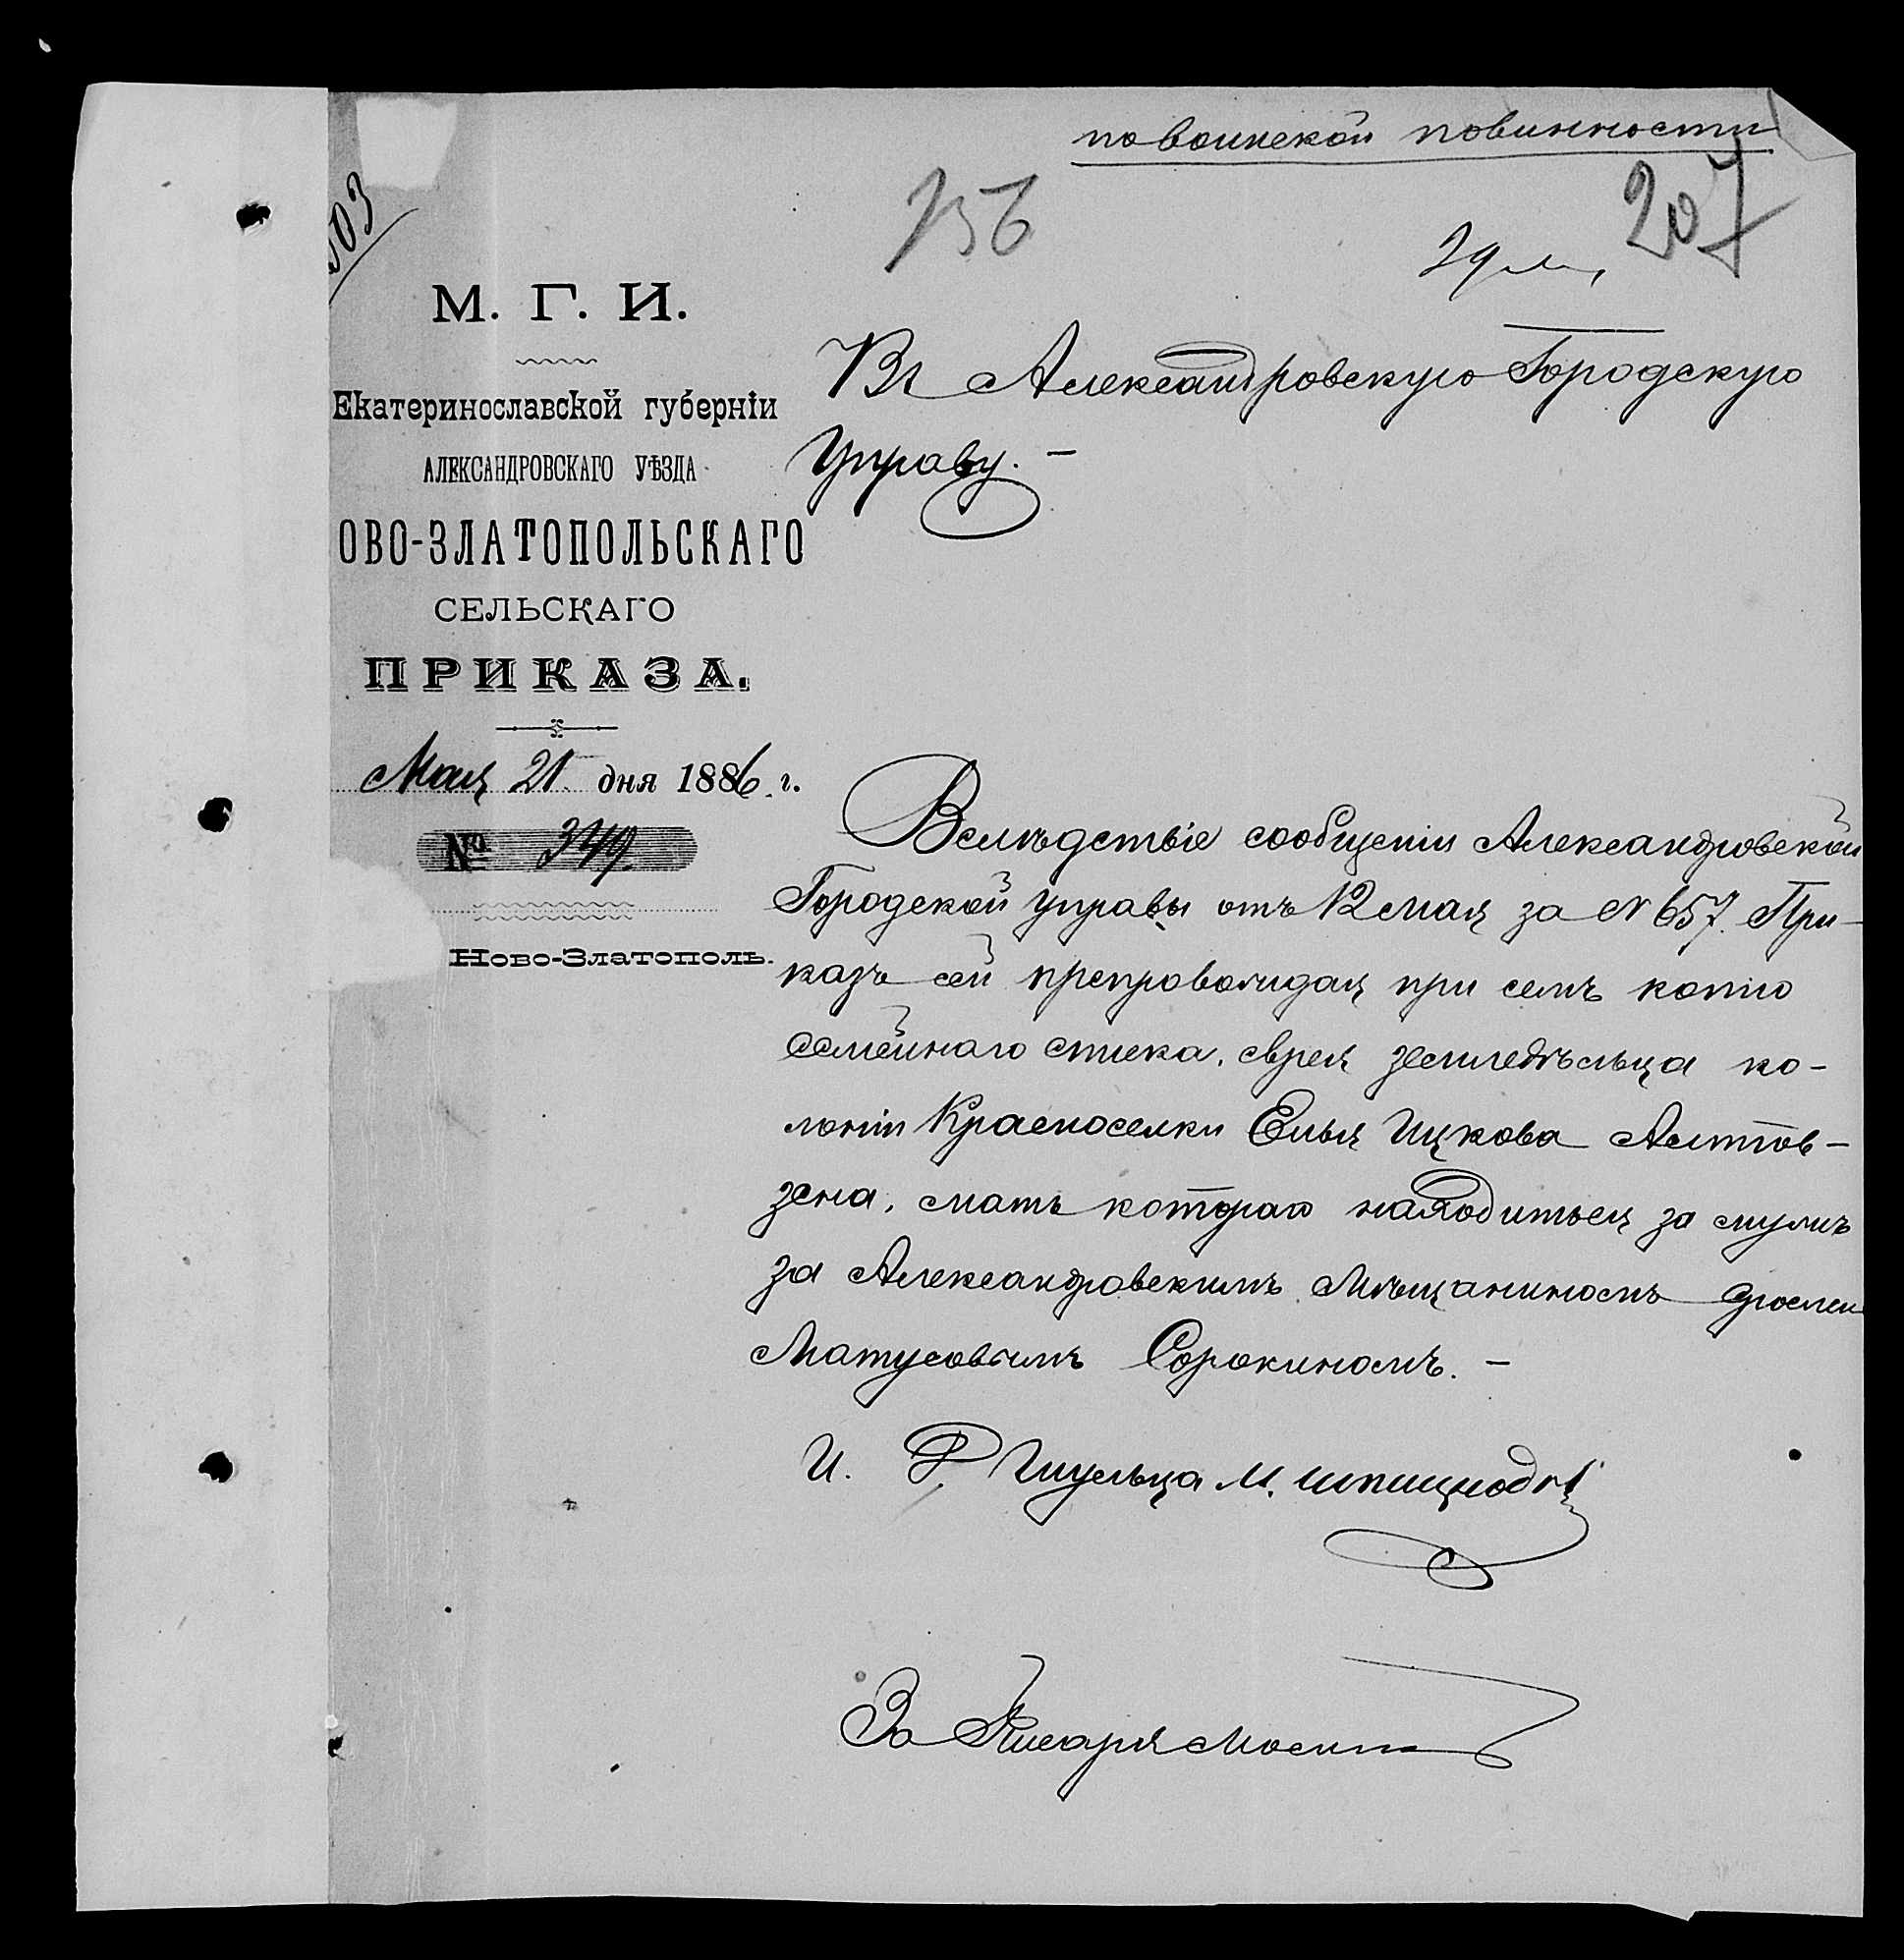 по воинской повинности
207
М. Г. И.
Екатеринославской губерніи
АЛЕКСАНДРОВСКАГО УѢЗДА
ОВО-ЗЛАТОПОЛЬСКАГО
СЕЛЬСКАГО
ПРИКАЗА.
Мая 21 дня 1886 г.
№ 349.
Ново-Златополь.
Въ Александровскую Городскую
Управу. –
Вслѣдствіе сообщенія Александровской
Городской управы отъ 12 мая за № 657. При-
казъ сей препровождая при семъ копію
семейнаго списка, еврея земледѣльца ко-
лоніи Красноселки Елья Ицкова
мать котораго находиться за мужъ
за Александровскимъ Мѣщаниномъ
Матусовымъ Сорокиномъ. –
И. Шульца М.
За Писаря